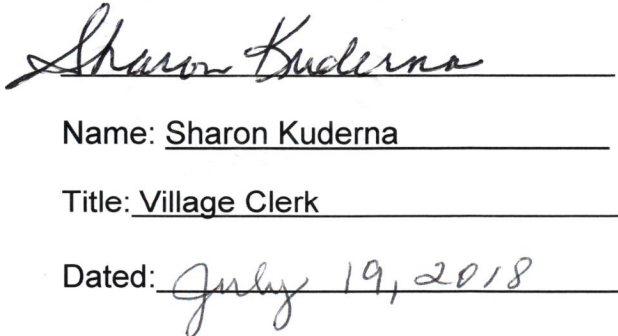 Sharon Kuderna
Name: Sharon Kuderna
Title: Village Clerk
Dated: July 19, 2018